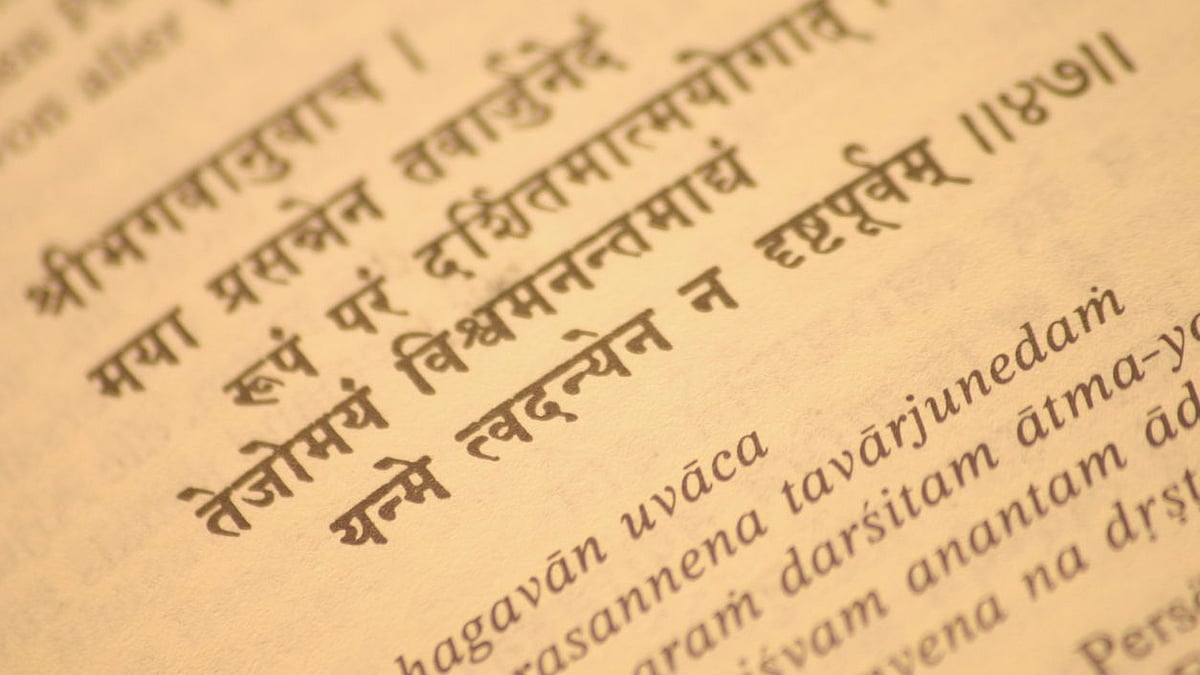 on aller
श्रीभगवानुवाच ।
मया प्रसन्नेन तवार्जुनेदं
रूपं परं दर्शितमात्मयोगात् ।
तेजोमयं विश्वमनन्तमाद्यं
यन्मे त्वदन्येन न दृष्टपूर्वम् ॥४७॥
hagavān uvāca
rasannena tavārjunedaṁ
araṁ darśitam ātma-yo
iśvam anantam ād
nyena na dṛṣṭ
Pers